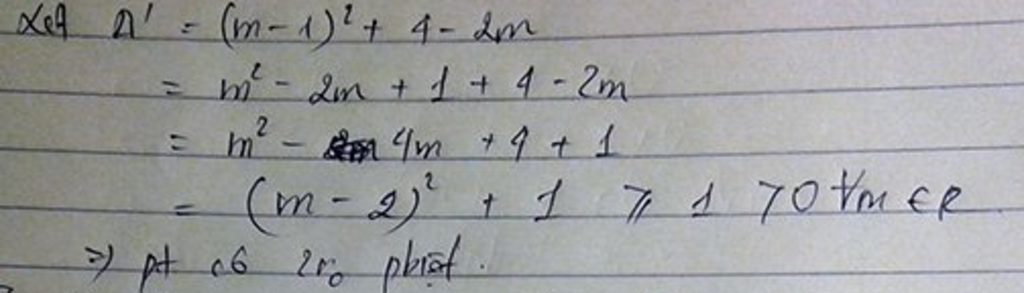 Xét Δ' = (m-1)² + 4 - 2m
= m² - 2m + 1 + 4 - 2m
= m² - 4m + 4 + 1
= (m - 2)² + 1 ⩾ 1 > 0 ∀m ∈ R
=> pt có 2 no pbiệt.